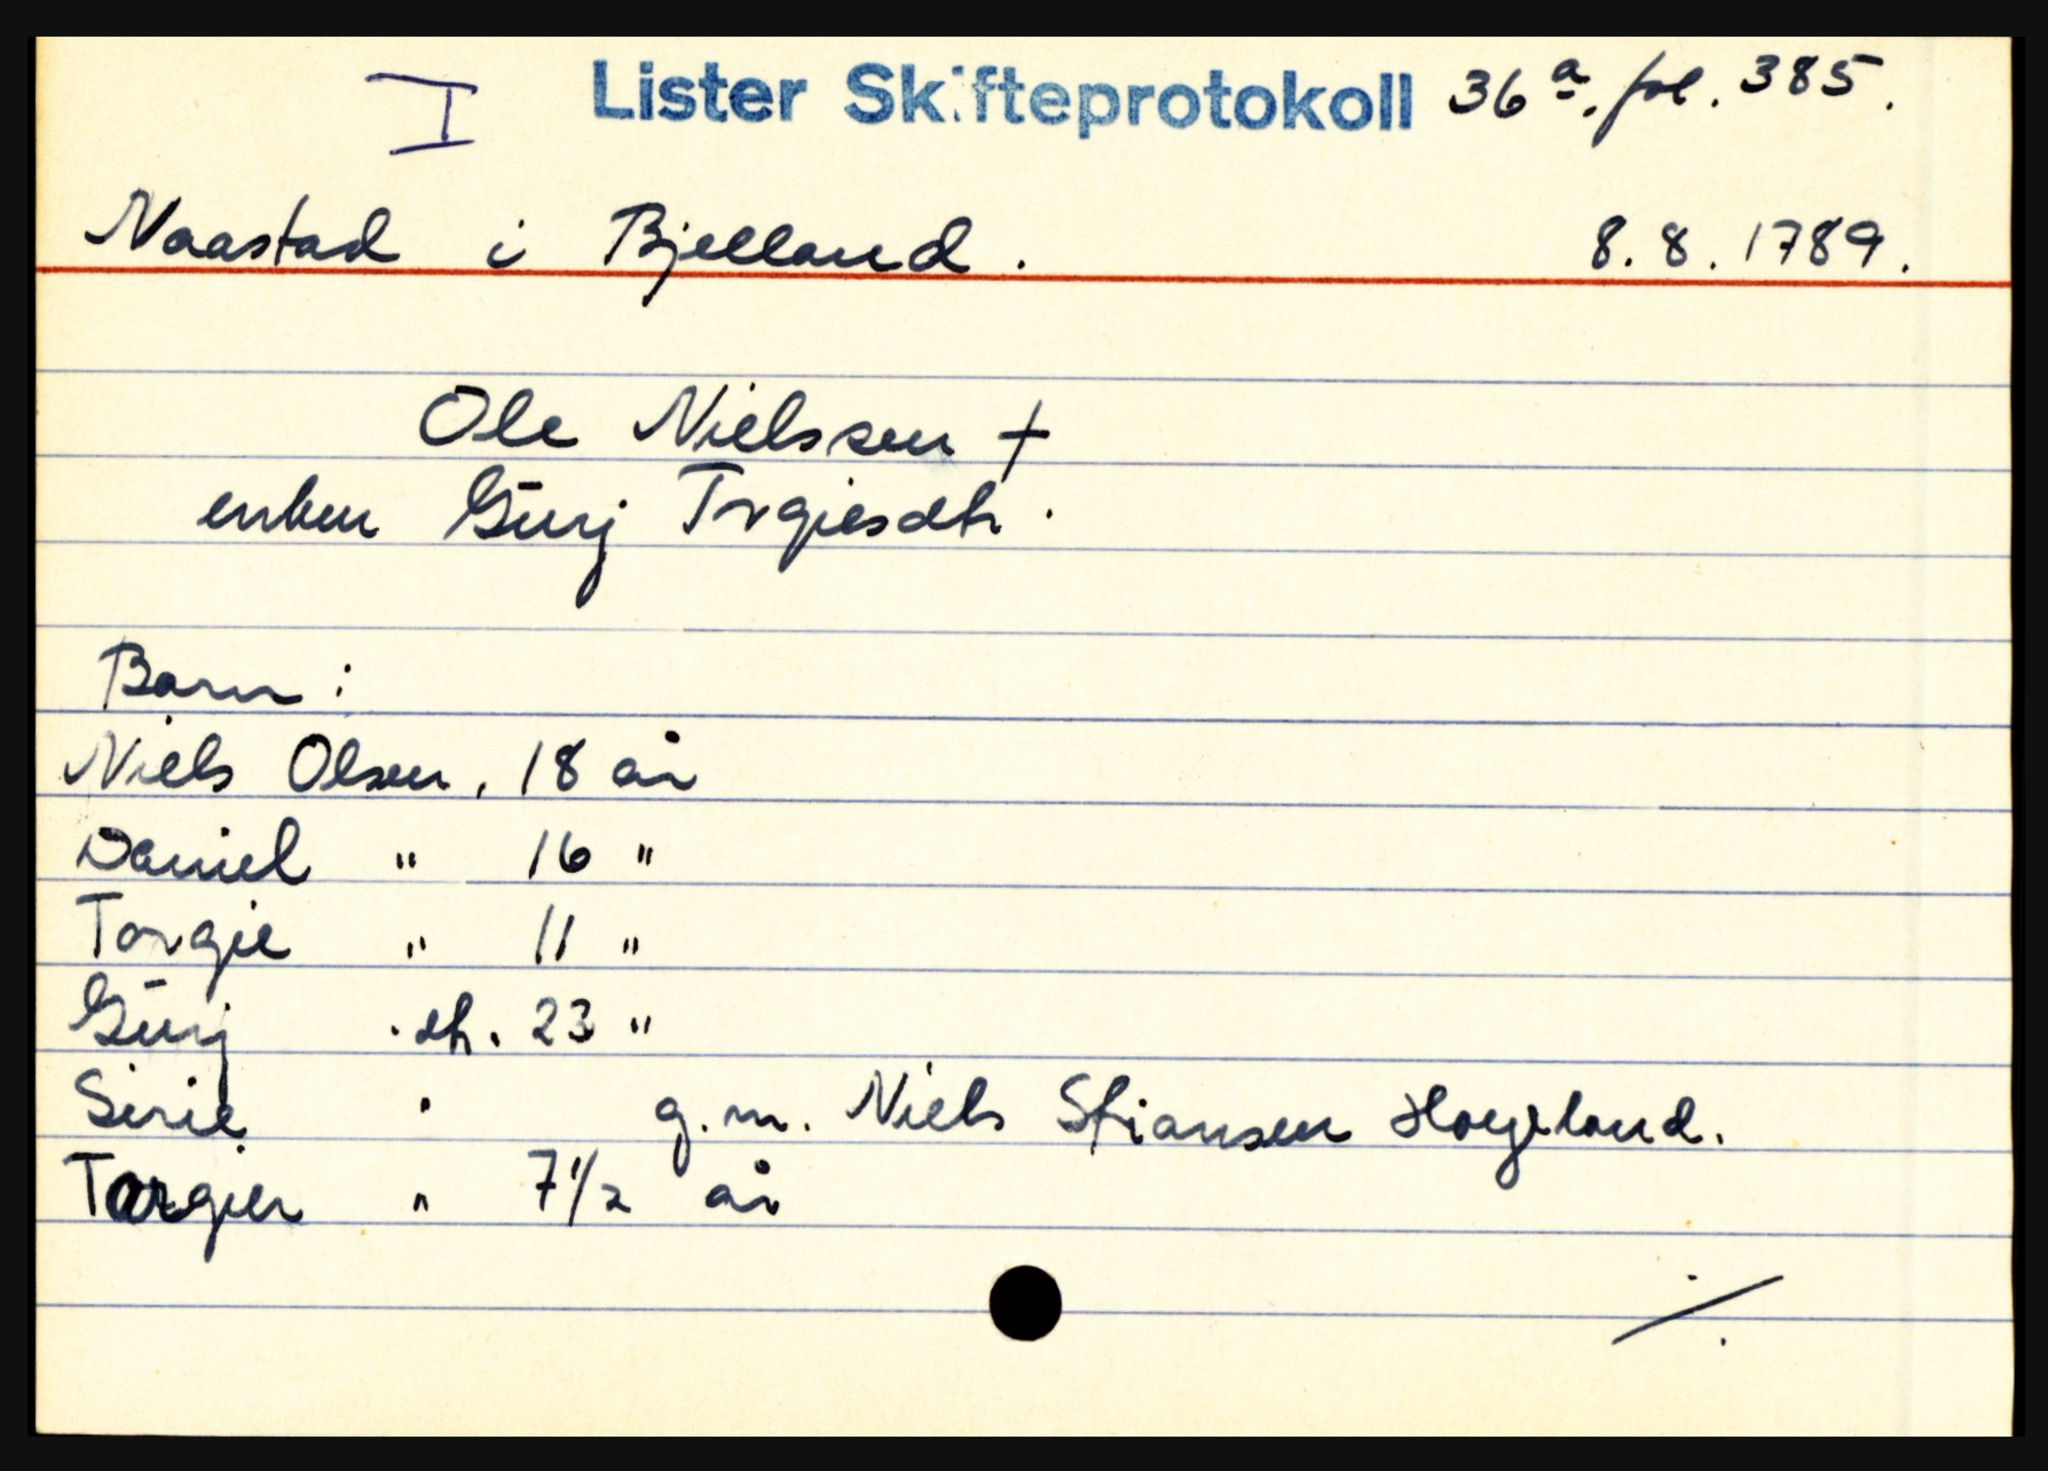 I Lister Skifteprotokoll 36a. fol. 385.
Naastad i Bjelland. 8.8.1789.
Ole Nielssen †
enken Gurj Trgiesdtr.
Barn:
Niels Olsen, 18 år
Daniel " 16 "
Torgie " 11 "
Gurj " dtr. 23 "
Sirie " g.m. Niels Stiansen Høyeland.
Torgier " 7 1/2 år
./.